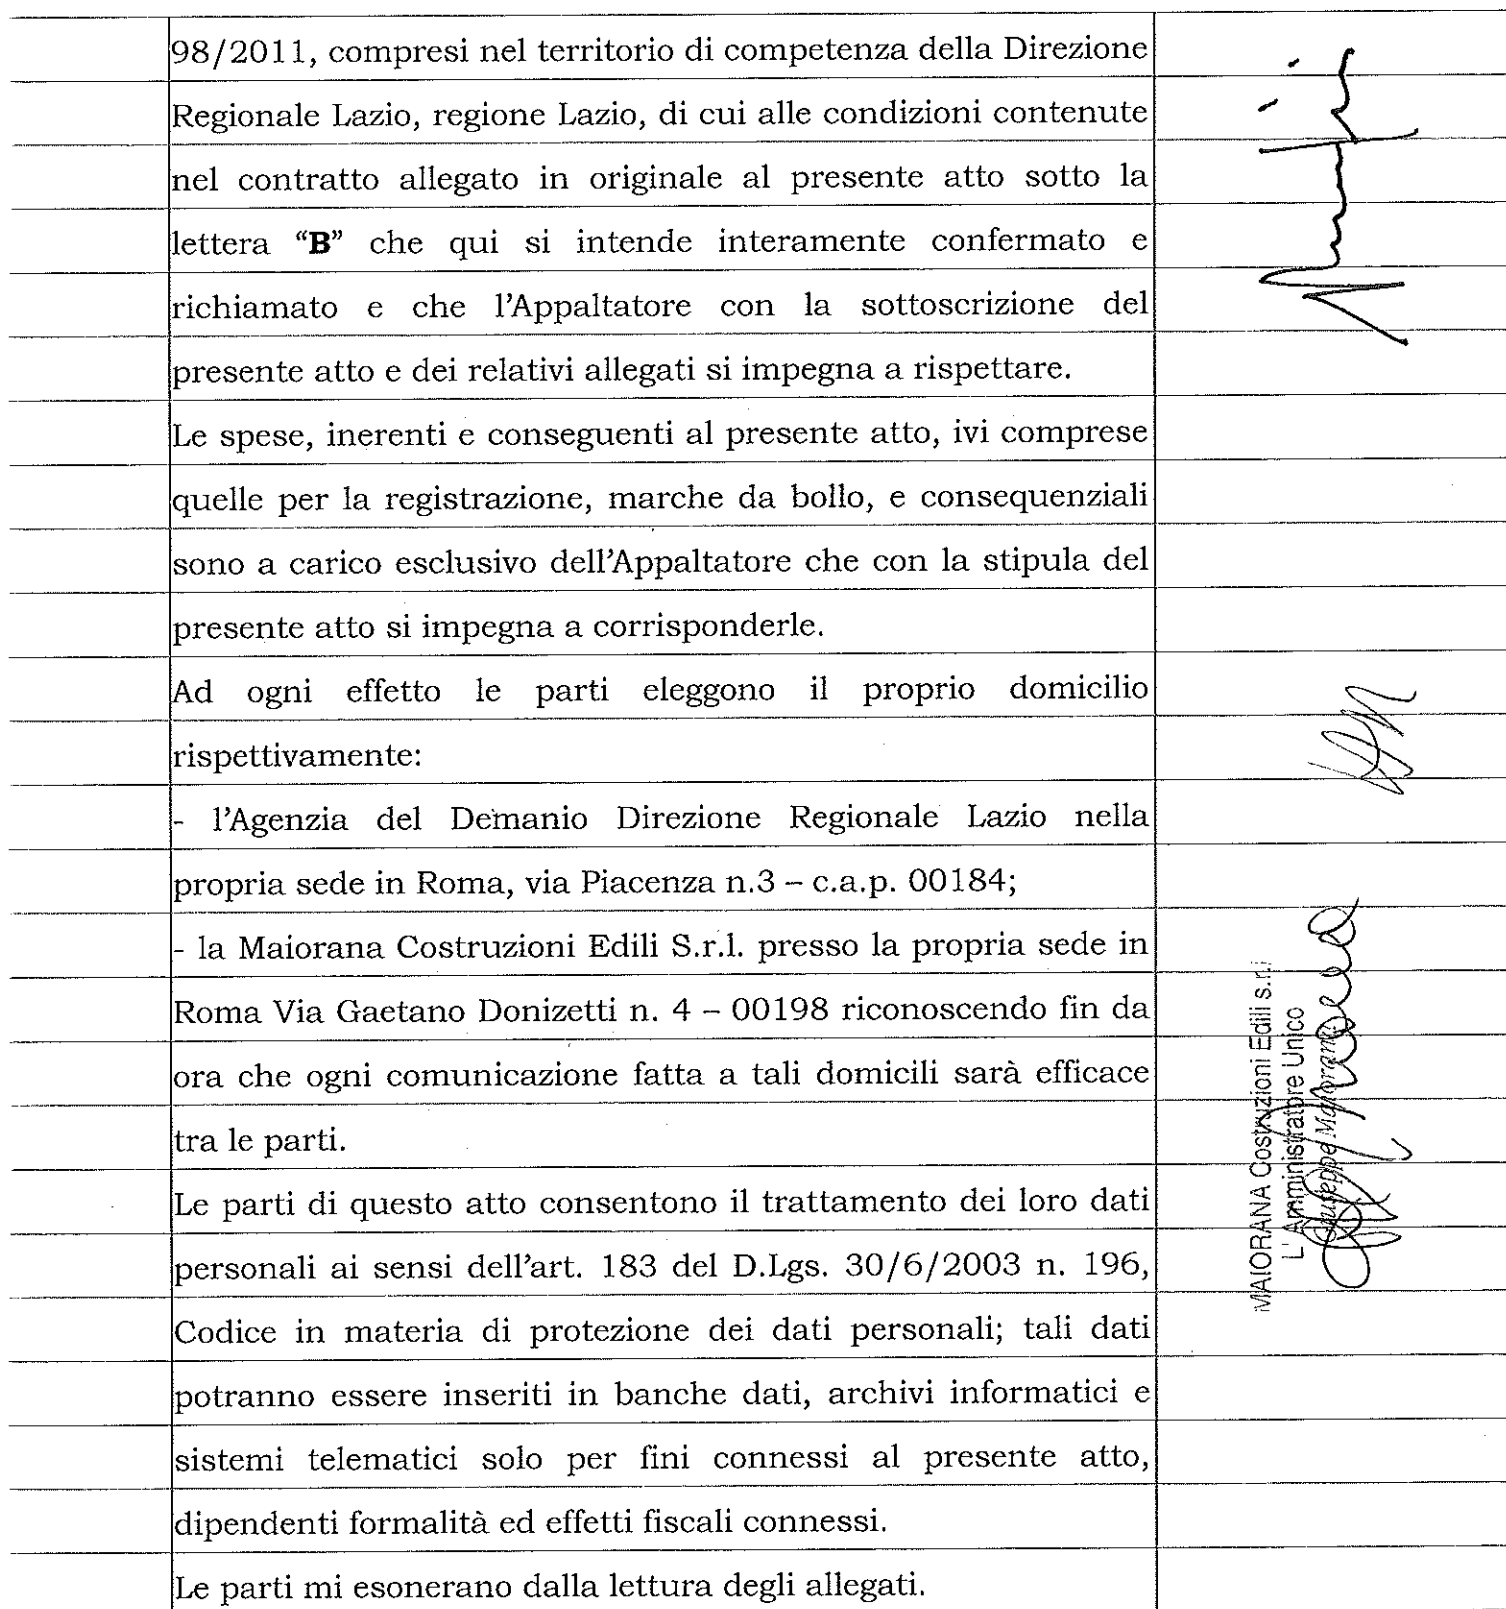 98/2011, compresi nel territorio di competenza della Direzione
Regionale Lazio, regione Lazio, di cui alle condizioni contenute
nel contratto allegato in originale al presente atto sotto la
lettera “B” che qui si intende interamente confermato e
richiamato e che l'Appaltatore con la sottoscrizione del
presente atto e dei relativi allegati si impegna a rispettare.
Le spese, inerenti e conseguenti al presente atto, ivi comprese
quelle per la registrazione, marche da bollo, e consequenziali
sono a carico esclusivo dell'Appaltatore che con la stipula del
presente atto si impegna a corrisponderle.
Ad ogni effetto le parti eleggono il proprio domicilio
rispettivamente:
- l'Agenzia del Demanio Direzione Regionale Lazio nella
propria sede in Roma, via Piacenza n.3 – c.a.p. 00184;
- la Maiorana Costruzioni Edili S.r.l. presso la propria sede in
Roma Via Gaetano Donizetti n. 4 – 00198 riconoscendo fin da
ora che ogni comunicazione fatta a tali domicili sarà efficace
tra le parti.
Le parti di questo atto consentono il trattamento dei loro dati
personali ai sensi dell'art. 183 del D.Lgs. 30/6/2003 n. 196,
Codice in materia di protezione dei dati personali; tali dati
potranno essere inseriti in banche dati, archivi informatici e
sistemi telematici solo per fini connessi al presente atto,
dipendenti formalità ed effetti fiscali connessi.
Le parti mi esonerano dalla lettura degli allegati.
MAIORANA Costruzioni Edili s.r.l
L' Amministratore Unico
Giuseppe Maiorana